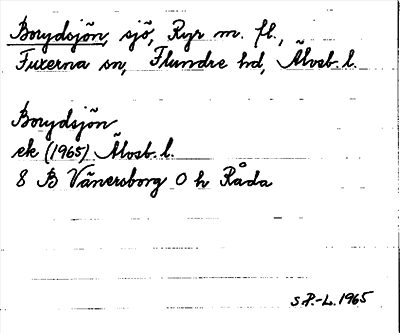 Borydsjön, sjö, Ryr m. fl.,
Fuxerna sn, Flundre hd, Älvsb. l.
Borydsjön
ek (1965) Älvsb. l.
8 B Vänersborg 0 h Råda
S.P.-L. 1965